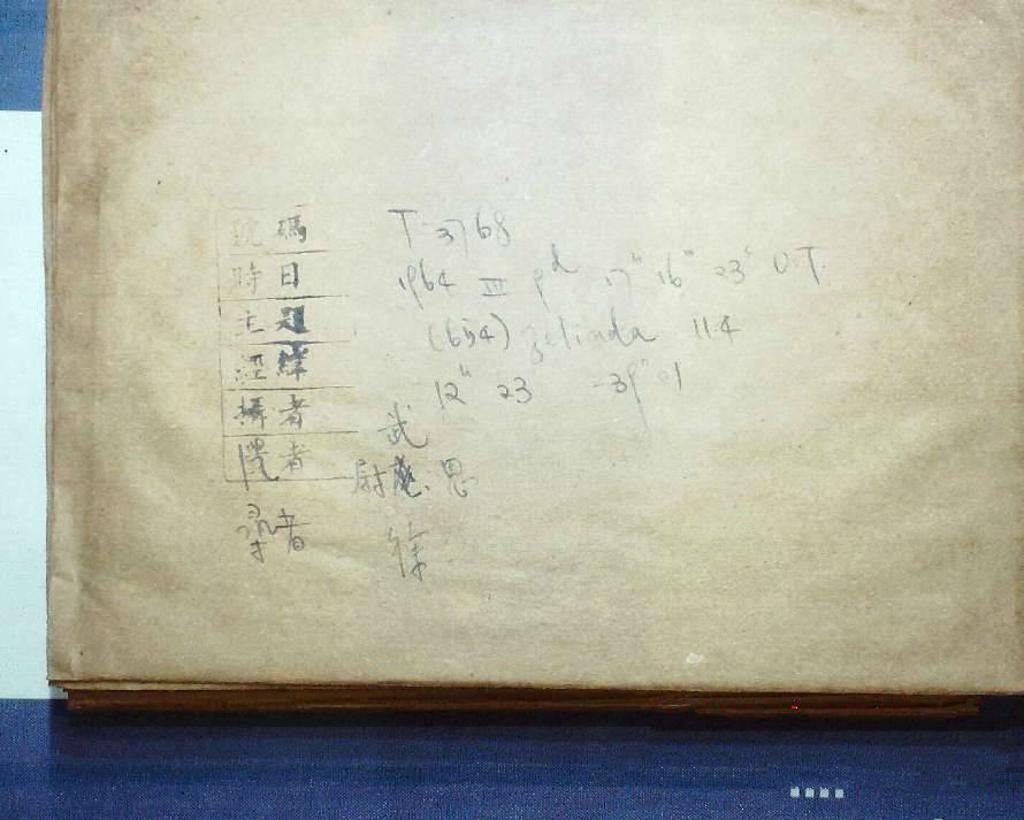 號碼 T-3768
時日 1964 III 9d 17h 16m 23s U.T.
主題 (654) Zelinda 11.4
經緯 12h 23 -39° 01
攝者 武
者 思
者 徐